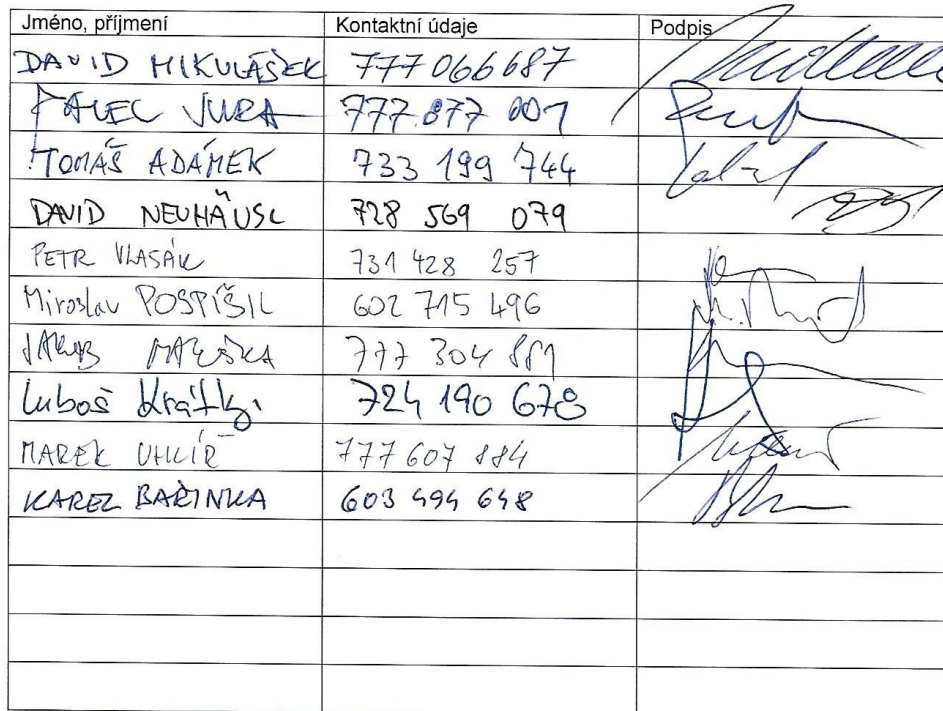 Jméno, příjmení Kontaktní údaje Podpis
DAVID MIKULÁŠEK 777 066 687
JURA 777 877 001
TOMÁŠ ADÁMEK 733 199 744
DAVID NEUHÄUSL 728 569 079
PETR VLASÁK 731 428 257
Miroslav POSPÍŠIL 602 715 496
JAKUB 777 304 881
Luboš Krátký 724 190 678
MAREK UHLÍŘ 777 607 884
KAREL BAŘINKA 603 494 648